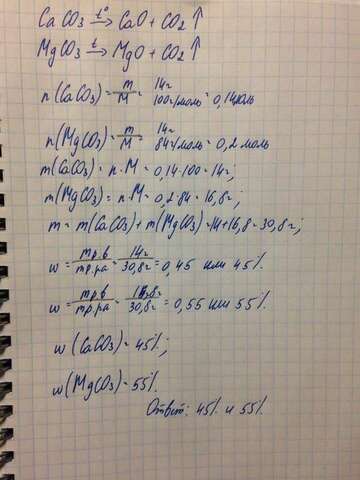 CaCO3 t°→ CaO + CO2↑
MgCO3 t→ MgO + CO2↑
n(CaCO3) = m/M = 14г/100г/моль = 0,14моль
n(MgCO3) = m/M = 14г/84г/моль = 0,2 моль
m(CaCO3) = n·M = 0,14·100 = 14г;
m(MgCO3) = n·M = 0,2·84 = 16,8г;
m = m(CaCO3) + m(MgCO3) = 14+16,8 = 30,8г;
w = mр.в/mр.ра = 14г/30,8г = 0,45 или 45%.
w = mр.в/mр.ра = 16,8г/30,8г = 0,55 или 55%.
w(CaCO3) = 45%;
w(MgCO3) = 55%
Ответ: 45% и 55%.